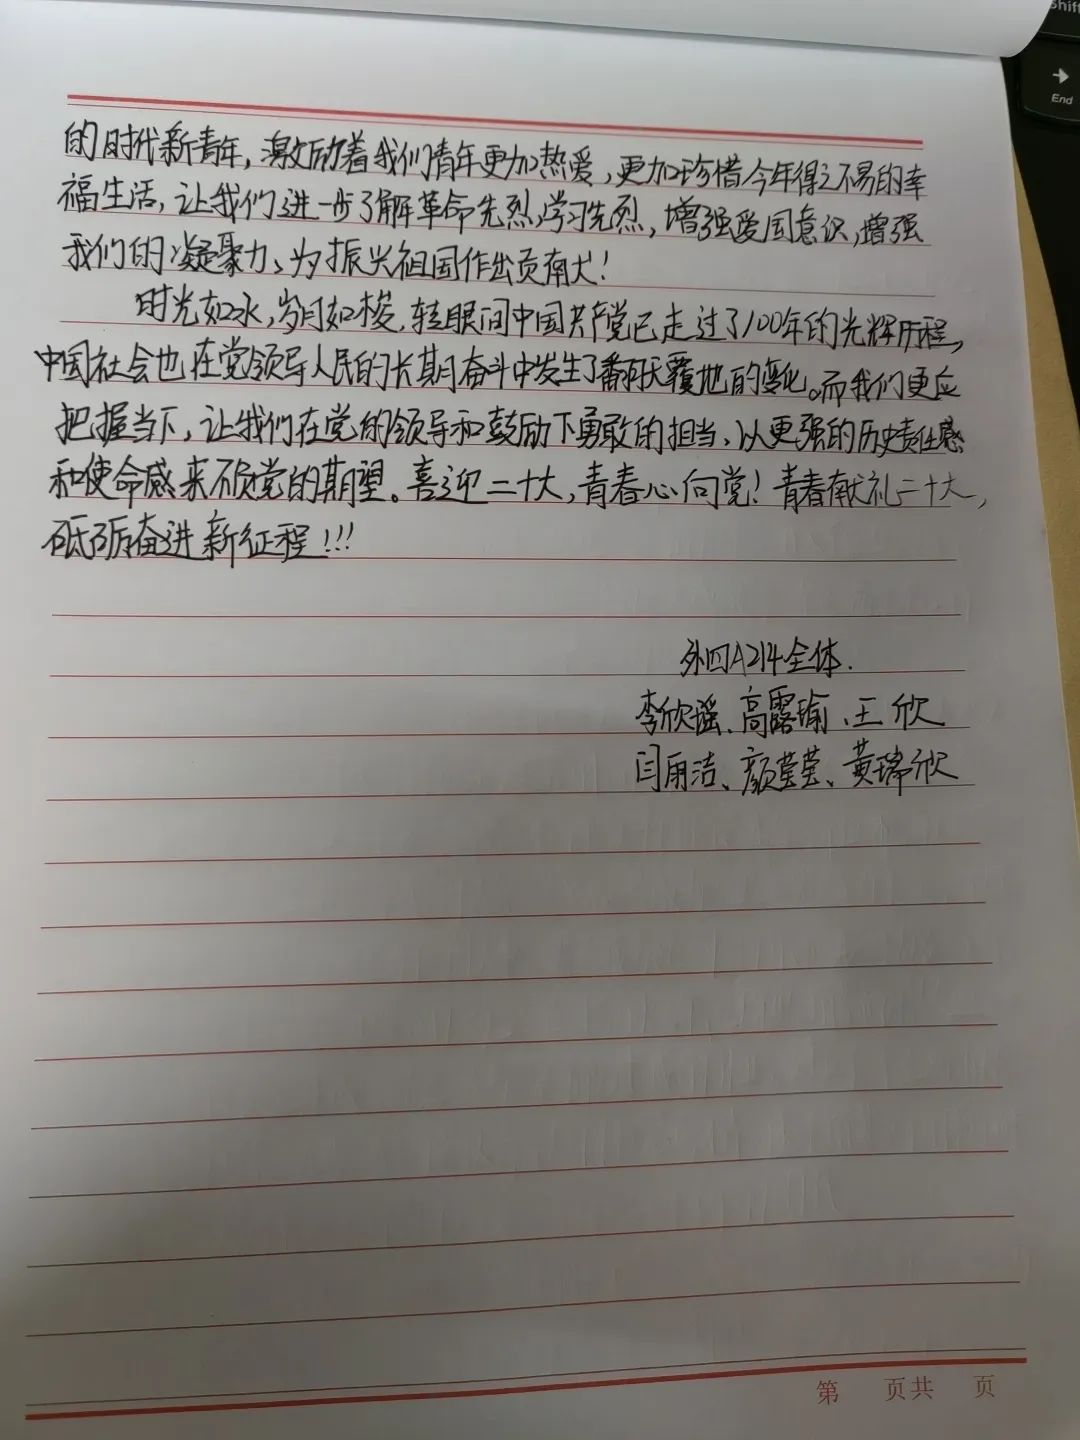 的时代新青年，激励着我们青年更加热爱，更加珍惜今年得之不易的幸
福生活，让我们进一步了解革命先烈，学习先烈，增强爱国意识，增强
我们的凝聚力、为振兴祖国作出贡献！
时光如水，岁月如梭，转眼间中国共产党已走过了100年的光辉历程，
中国社会也在党领导人民的长期奋斗中发生了翻天覆地的变化。而我们更应
把握当下，让我们在党的领导和鼓励下勇敢的担当、以更强的历史责任感
和使命感来不负党的期望。喜迎二十大，青春心向党！青春献礼二十大，
砥砺奋进新征程！！！
外四A214全体.
李欣谣、高露瑜、王欣
闫雨洁、颜莹莹、黄瑞欣
第 页共 页
Shift
End